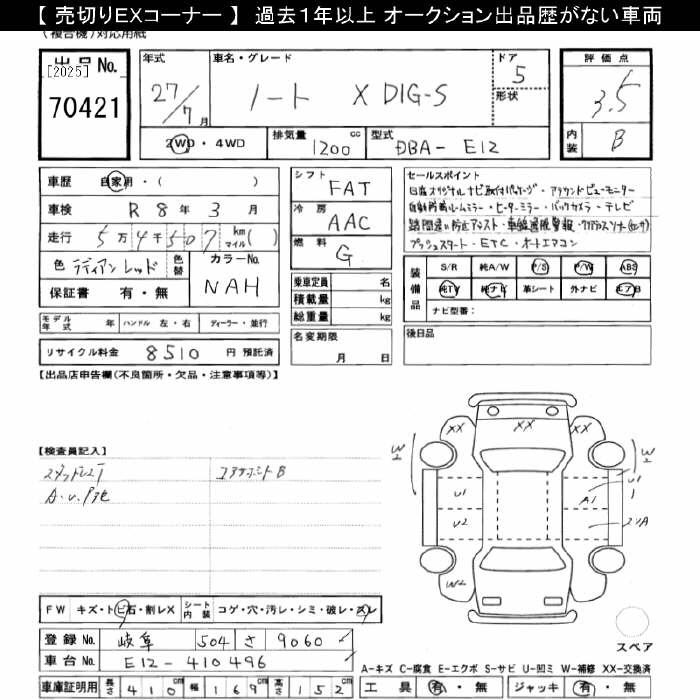 【 売切りEXコーナー 】 過去1年以上 オークション出品歴がない車両
(複合機)対応用紙
出品No.
[2025]
70421
年式
27/7月
車名・グレード
ノート X DIG-S
ドア
5
形状
評価点
3.5
内装
B
2WD・4WD
排気量
1200
cc
型式
DBA-E12
車歴
自家用・( )
車検
R 8年 3月
走行
5万4千507
km
マイル
( )
色
ラディアントレッド
色替
カラーNo.
NAH
保証書 有・無
シフト
FAT
冷房
AAC
燃料
G
乗車定員 名
積載量 kg
総重量 kg
セールスポイント
日産オリジナルナビ取付パッケージ・アラウンドビューモニター
自動防眩ルームミラー・ヒーターミラー・バックカメラ・テレビ
踏間違い防止アシスト・車線逸脱警報・クリアランスソナー
プッシュスタート・ETC・オートエアコン
装備品
S/R 純A/W P/S P/W ABS
純TV 純ナビ 革シート 外ナビ エアB
ナビ型番:
モデル年式 年 ハンドル 左・右 ディーラー・並行
名変期限
月 日
後日品
リサイクル料金 8510 円 預託済
【出品店申告欄(不良箇所・欠品・注意事項等)】
【検査員記入】
スタッドレスT
コアサポートB
XX XX XX
W2 W2
U1 A1 U1
U2
W2
FW キズ・トビ石・割レX シート内装 コゲ・穴・汚レ・シミ・破レ・スレ
登録No. 岐阜 504 さ 9060
車台No. E12-410496
車庫証明用 長さ 410cm 幅 169cm 高さ 152cm
スペア
A-キズ C-腐食 E-エクボ S-サビ U-凹ミ W-補修 XX-交換済
工具 有・無 ジャッキ 有・無